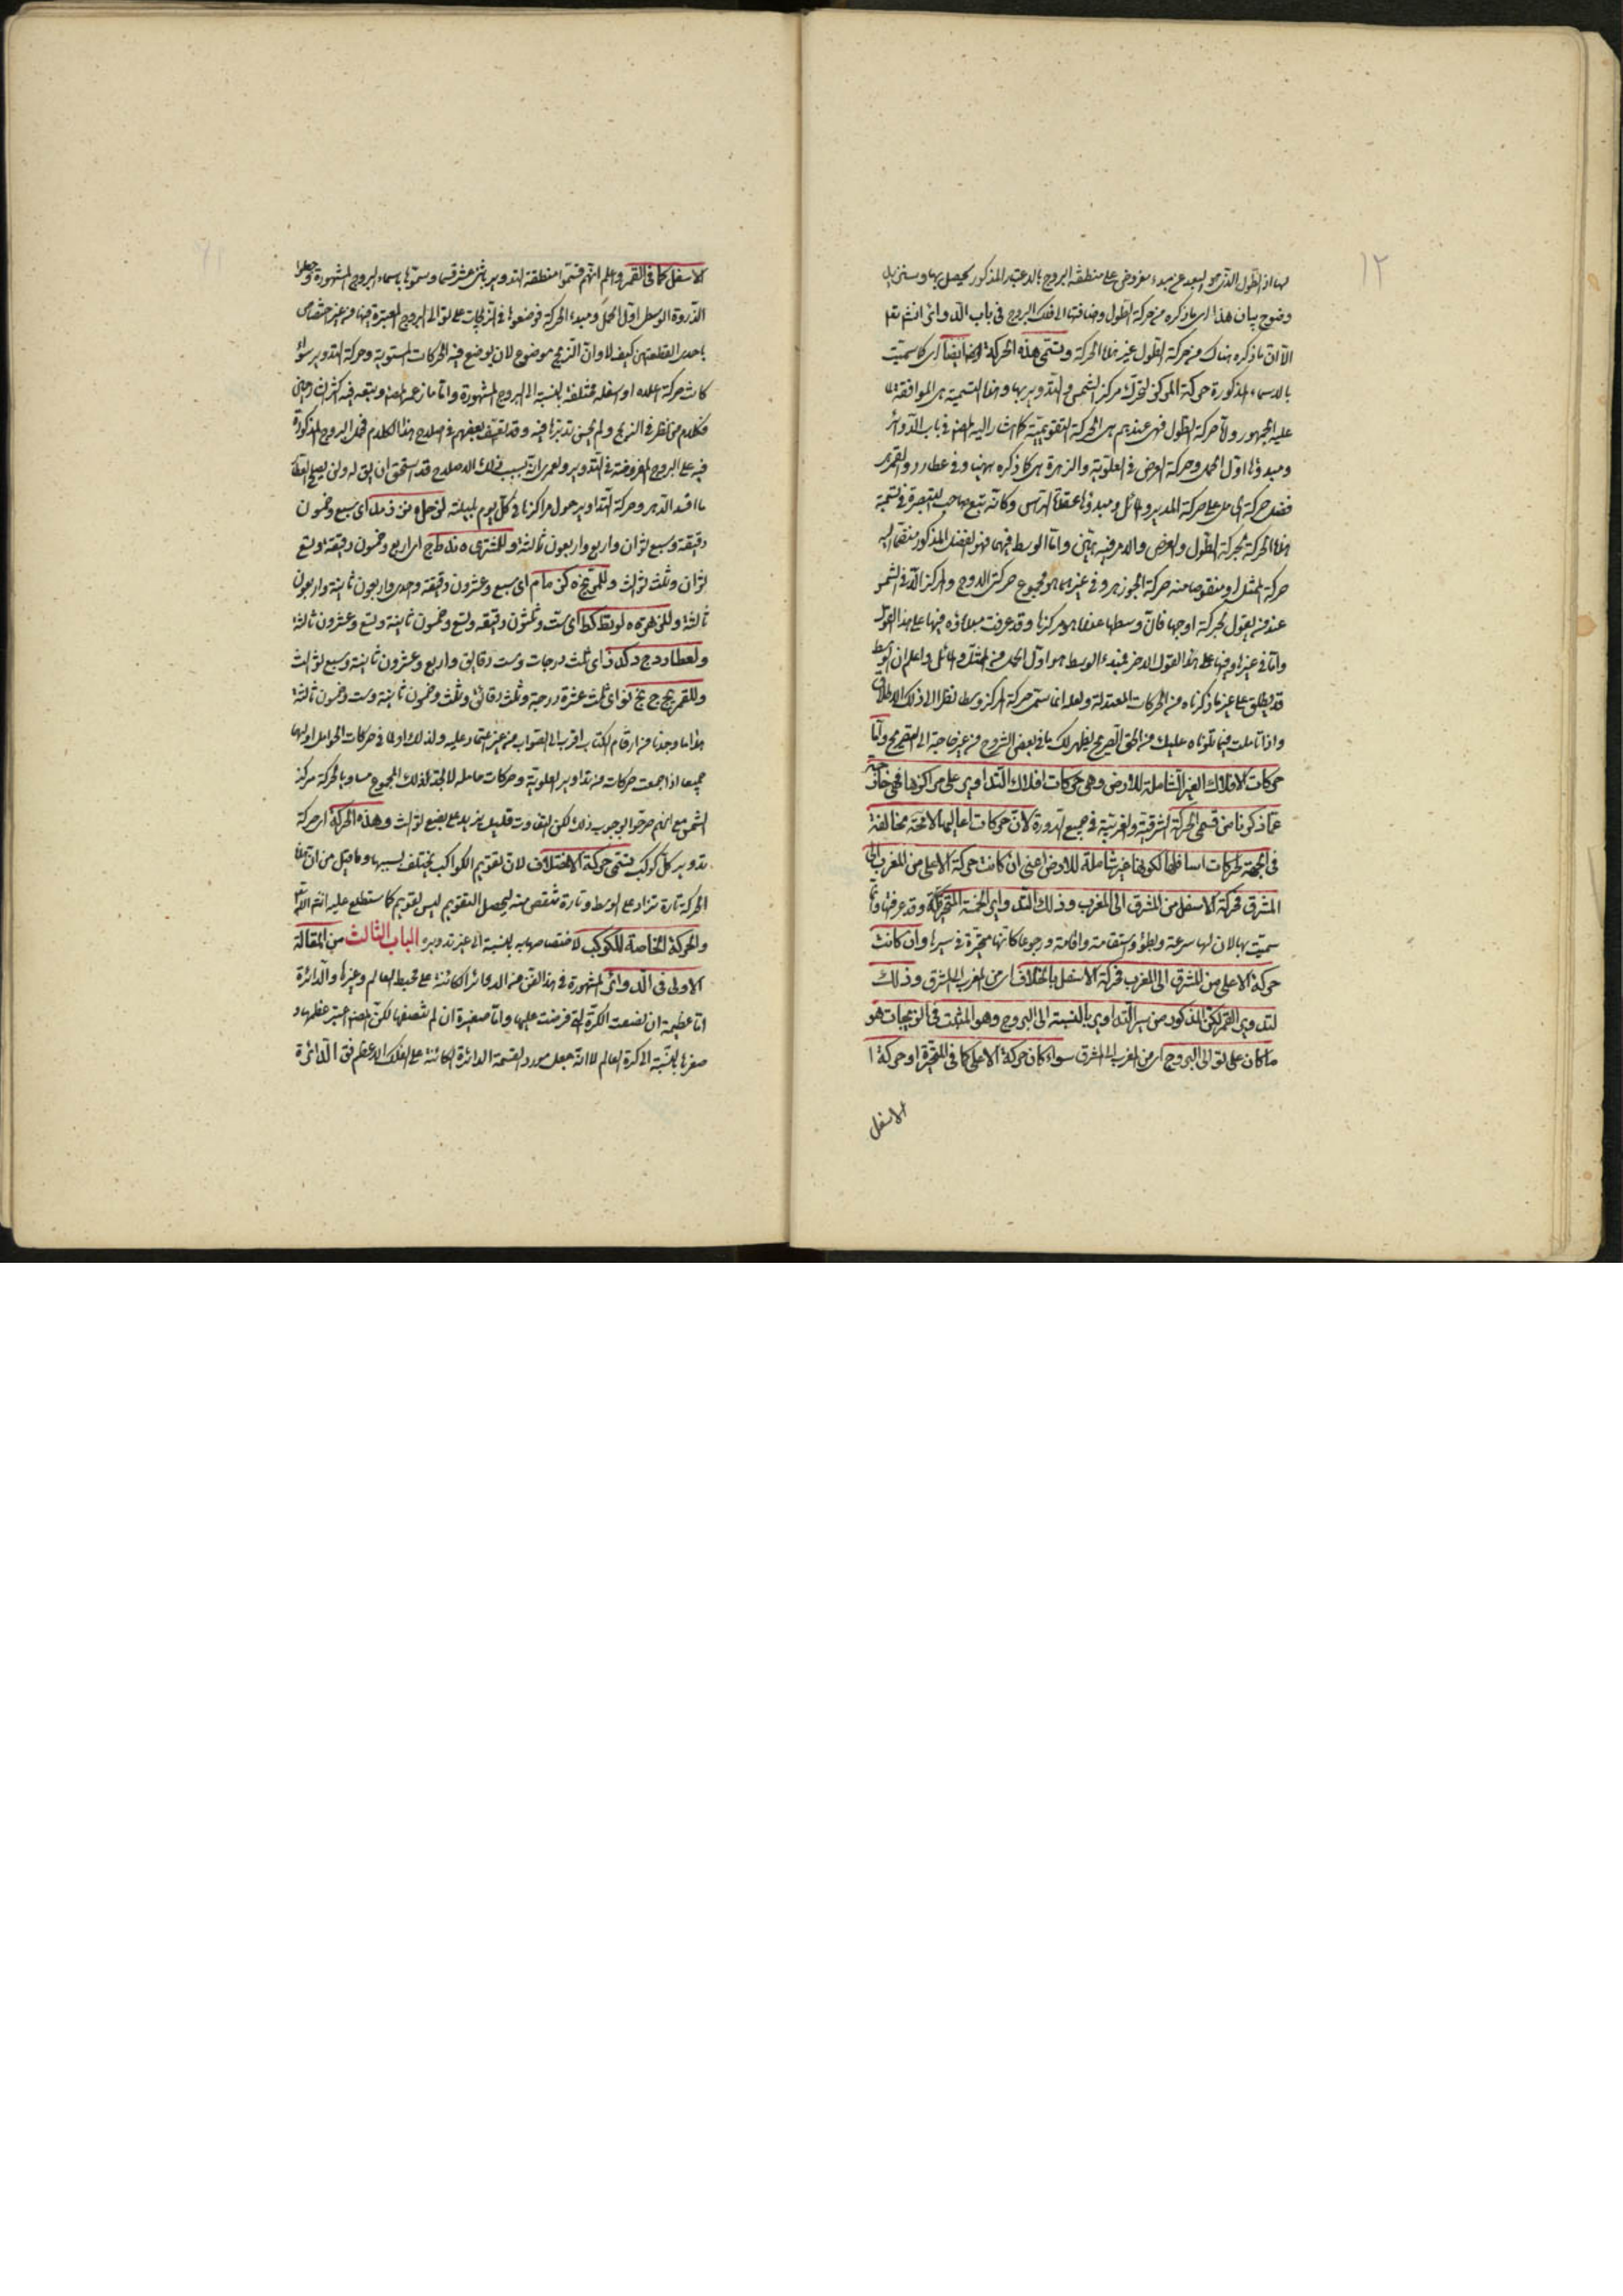 ١٢
لها اذ الطول الذى هو البعد عن مبدء مفروض على منطقة البروج بالاعتبار المذكور يحصل بها وسنزيد
وضوح بيان هذا اى ما ذكره من حركة الطول واضافتها الى فلك البروج فى باب الدوائر انشاء تعالى
الا ان ما ذكره هناك من حركة الطول غير هذه الحركة وتسمى هذه الحركة ايضا اى كما سميت
بالاسماء المذكورة حركة المركز لتحرك مركز الشمس والتدوير بها وهذا التسمية هى الموافقة لما
عليه الجمهور والا حركة الطول فهى عندهم هى الحركة التقويمية كما اشار اليه المصنف فى باب الدوائر
ومبدؤها اول الحمل وحركة العرض فى العلوية والزهرة هى كما ذكره ههنا وفى عطارد والقمر
فضل حركة الحامل على حركة المدير والمائل ومبدؤها عقدة الراس وكانه تبع صاحب التبصرة فى تسمية
هذه الحركة بحركة الطول والعرض والامر فيه هين واما الوسط فيهما فهو الفضل المذكور منضما اليه
حركة الممثل او منقوصا منه حركة الجوزهر وفى غيرهما هو مجموع حركتى الاوج والمركز الا فى الشمس
عند من يقول بحركة اوجها فان وسطها عندنا هو مركزها وقد عرفت مبدؤه فيها على هذا القول
واما فى غيرها وفيها على هذا القول الاخر فمبدء الوسط هو اول الحمل من الممثل والمائل واعلم ان الوسط
قد يطلق على غير ما ذكرناه من الحركات المعتدلة ولعله انما سمى حركة المركز وسطا نظرا الى ذلك الاطلاق
واذا تاملت فيما تلوناه عليك من الحق الصريح ليظهر لك ما فى بعض الشروح من غير حاجة الى التصريح واما
حركات الافلاك الغير الشاملة للارض وهى حركات افلاك التداوير على مراكزها فهى خارجة
عما ذكرنا من قسمى الحركة الشرقية والغربية فى جميع الدورة لان حركات اعاليها لا محة مخالفة
فى الجهة لحركات اسافلها لكونها غير شاملة للارض اعنى ان كانت حركة الاعلى من المغرب الى
المشرق فحركة الاسفل من المشرق الى المغرب وذلك التداوير الخمسة المتحيرة وقد عرفتها وانما
سميت بها لان لها سرعة وبطؤ واستقامة واقامة ورجوعا كانها متحيرة فى سيرها وان كانت
حركة الاعلى من المشرق الى المغرب فحركة الاسفل بالخلاف اى من المغرب الى المشرق وذلك
لتدوير القمر لكن المذكور من سير التداوير بالنسبة الى البروج وهو المثبت فى الزيجات هو
ما كان على توالى البروج اى من المغرب الى المشرق سواء كان حركة الاعلى كما فى المتحيرة او حركة ا
الاسفل
الاسفل كما فى القمر واعلم انهم قسموا منطقة التدوير باثنى عشر قسما وسموها باسماء البروج المشهورة وجعلوا
الذروة الوسطى اول الحمل ومبدء الحركة فوضعوها فى الزيجات على توالى البروج المعتبرة فيها من غير اختصاص
باحدى القطعتين كيف لا وان الزيج موضوع لان يوضع فيه الحركات المستوية وحركة التدوير سواء
كانت حركة اعلاه او اسفله مختلفة بالنسبة الى البروج المشهورة واما ما زعمه المصنف وتبعه فيه كثير من
فكلام من نظر فى الزيج ولم يحسن تدبرا فيه وقد تعسف بعضهم فى اصلاح هذا الكلام فحمل البروج المذكورة
فيه على البروج المفروضة فى التدوير ولعمرى انه بسبب ذلك الاصلاح قد استحق ان يق له ولن يصلح العطار
ما افسد الدهر وحركة التداوير حول مراكزها فى كل يوم بليلته لزحل ه نز ز مد اى سبع وخمسون
دقيقة وسبع ثوان واربع واربعون ثالثة وللمشترى ه ند ط ج اى اربع وخمسون دقيقة وتسع
ثوان وثلث ثوالث وللمريخ ه كز ما م اى سبع وعشرون دقيقة واحدى واربعون ثانية واربعون
ثالثة وللزهرة ه لو نط كط اى ست وثلثون دقيقة وتسع وخمسون ثانية وتسع وعشرون ثالثة
ولعطارد ج و كد ز اى ثلث درجات وست دقايق واربع وعشرون ثانية وسبع ثوالث
وللقمر يج ج نج نو اى ثلث عشرة درجة وثلث دقائق وثلث وخمسون ثانية وست وخمسون ثالثة
هذا ما وجدنا من ارقام الكتاب اقرب الى الصواب من غير اعتماد عليه ولذلك اوردنا فى حركات الحوامل اوليها
جميعا اذا جمعت حركات من تداوير العلوية وحركات حامله لا تجد لذلك المجموع مساويا لحركة مركز
الشمس مع انهم صرحوا بوجوب ذلك لكن التفاوت قليل يزيد على بضع ثوالث وهذه الحركة اى حركة
تدوير كل كوكب تسمى حركة الاختلاف لان تقويم الكواكب يختلف بسببها وما قيل من ان هذه
الحركة تارة تزاد على الوسط وتارة تنقص منه ليحصل التقويم ليس بقويم كما ستطلع عليه انشاء الله تعالى
والحركة الخاصة للكوكب لاختصاصها به بالنسبة الى غير تدويره الباب الثالث من المقالة
الاولى فى الدوائر المشهورة فى هذا الفن من الدوائر الكائنة على محيط العالم وغيرها والدائرة
اما عظيمة ان نصفت الكرة التى فرضت عليها واما صغيرة ان لم تنصفها لكن المصنف اعتبر عظمها و
صغرها بالنسبة الى كرة العالم لا انه جعل مورد القسمة الدائرة الكائنة على الفلك الاعظم فق الدائرة